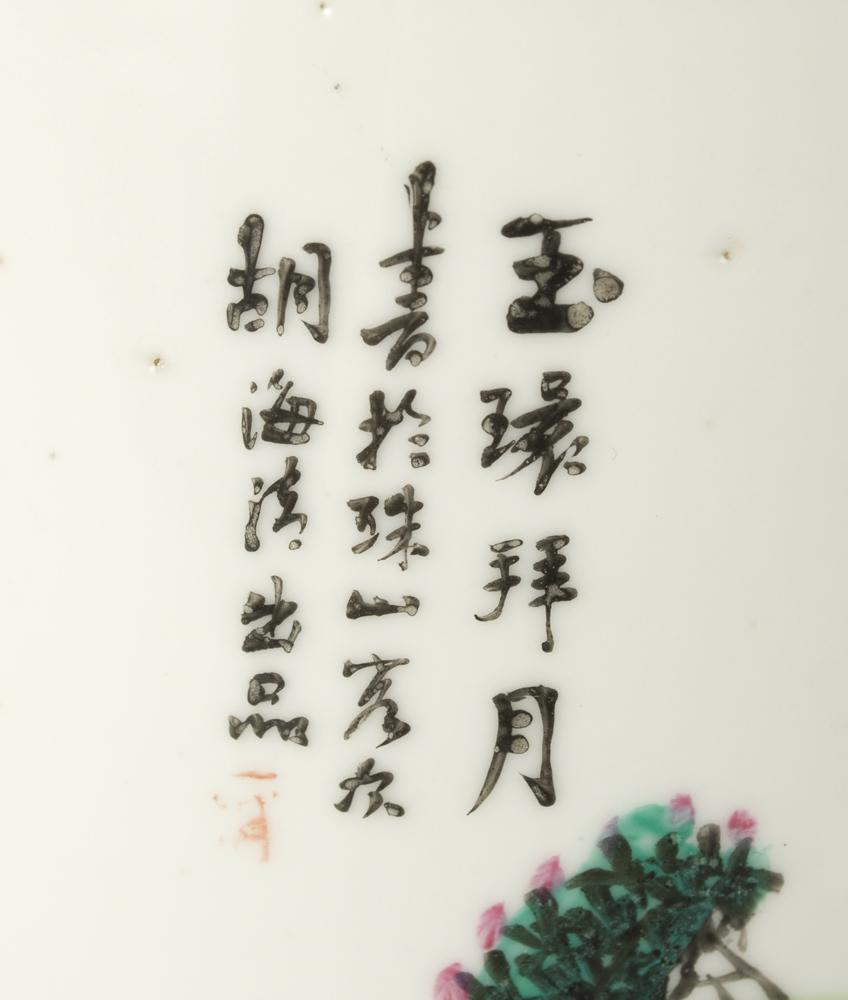 玉環拜月
書於珠山客次
胡海出品